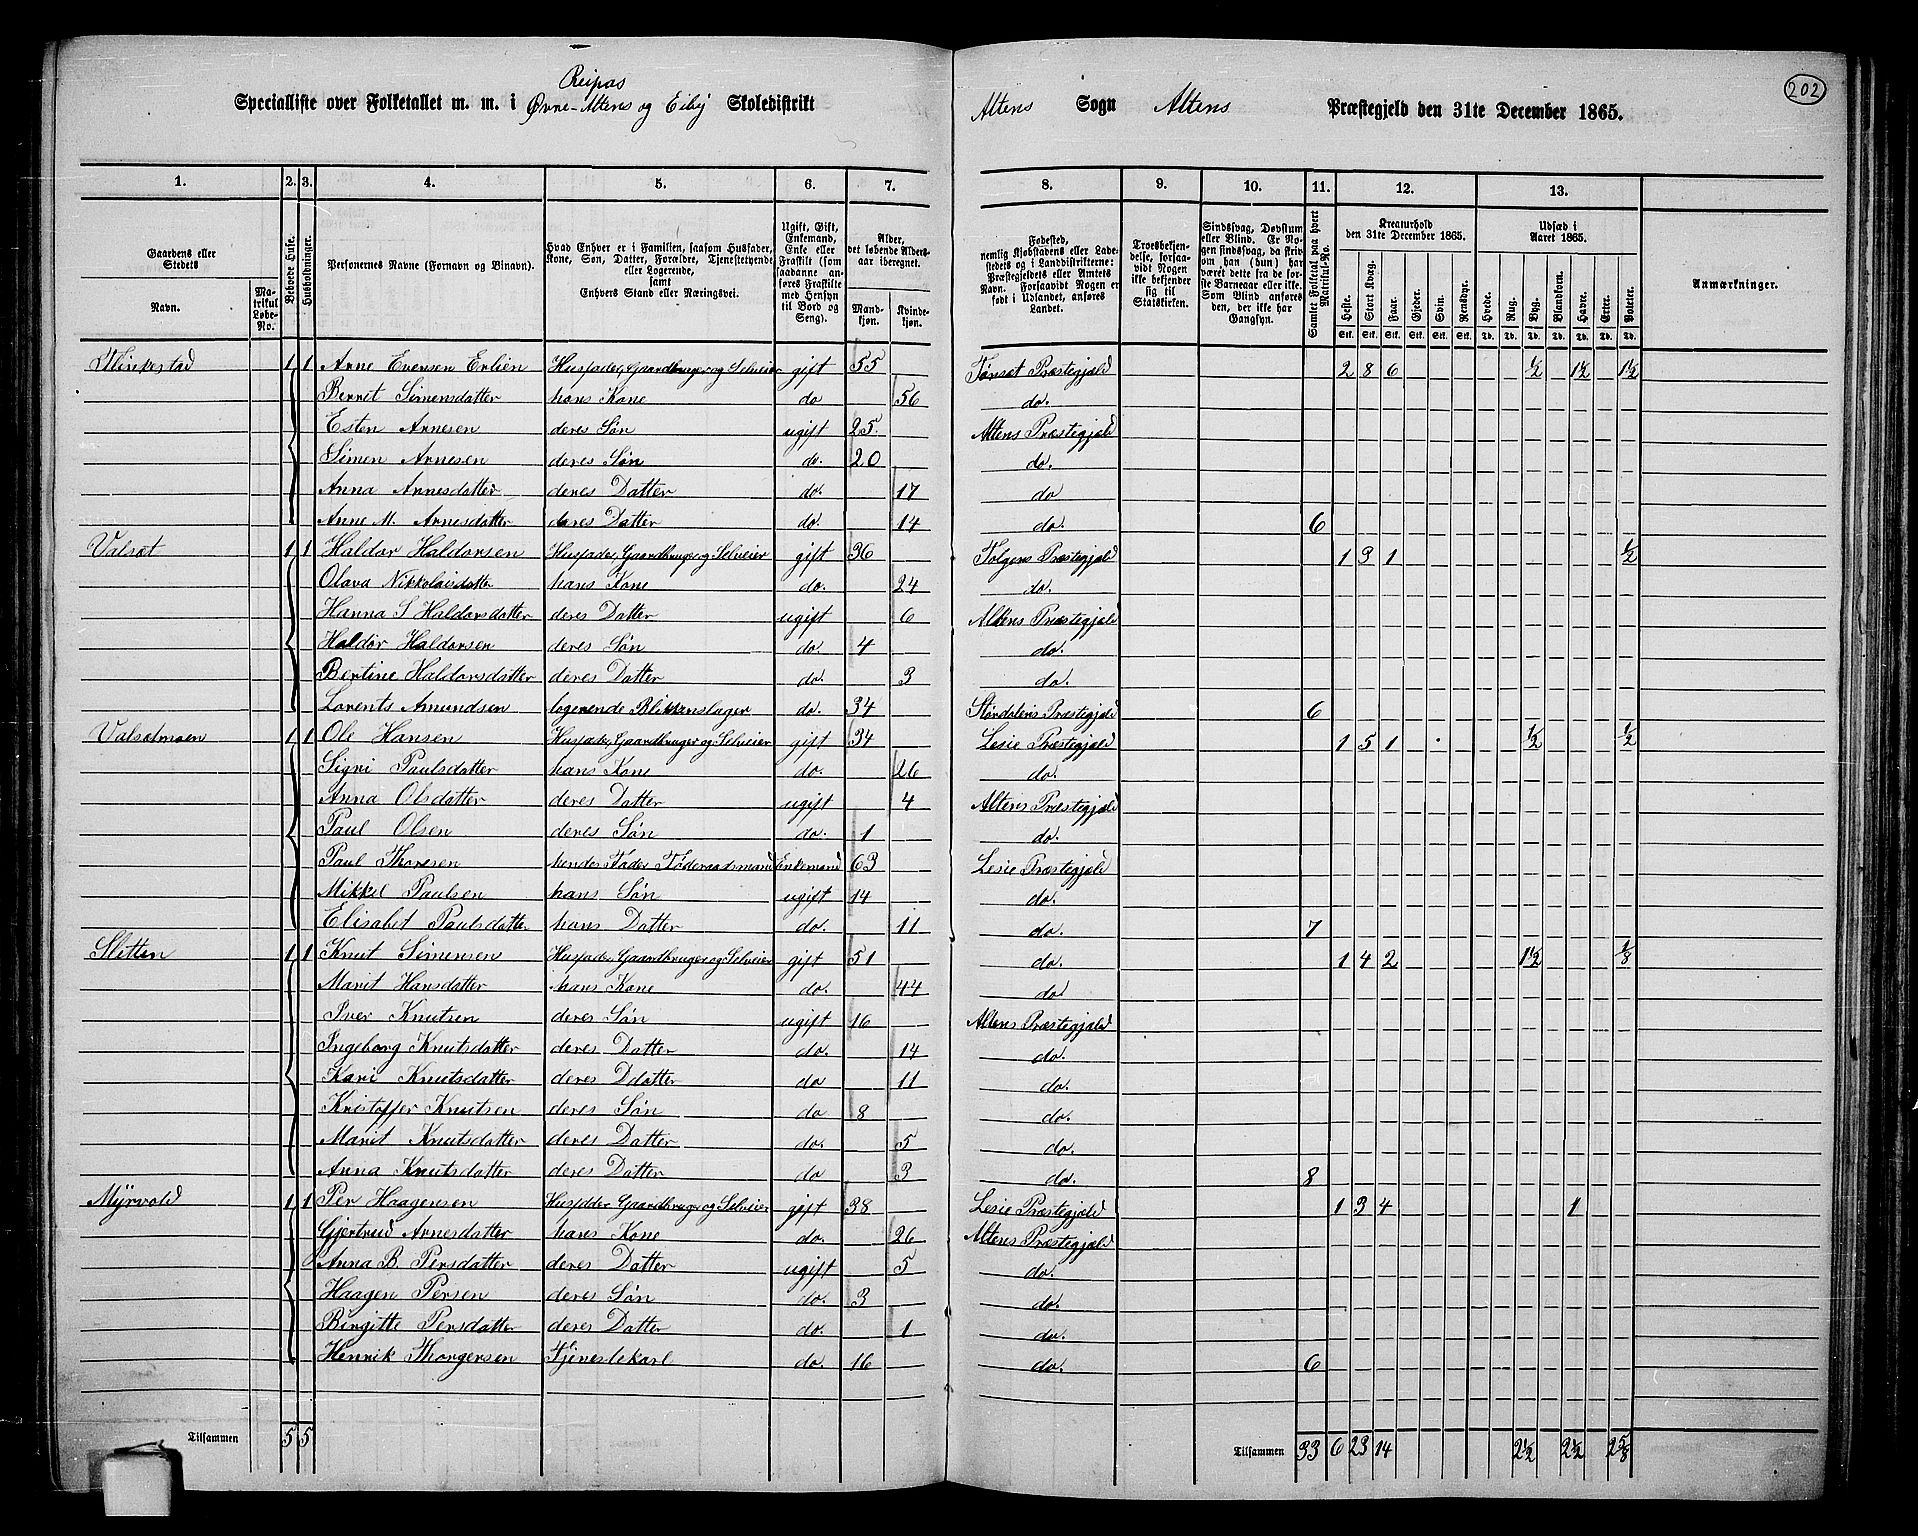 202
Reipas
Specialliste over Folketallet m. m. i Øvre-Altens og Eiby Skoledistrikt Altens Sogn Altens Præstegjeld den 31te December 1865.
1. 2. 3. 4. 5. 6. 7. 8. 9. 10. 11. 12. 13.
Gaardens eller Stedets Navn. Matrikul Løbe-No. Beboede Huse. Husholdninger. Personernes Navne (Fornavn og Binavn). Hvad Enhver er i Familien, saasom Husfader, Kone, Søn, Datter, Forældre, Tjenestetyende eller Logerende, samt Enhvers Stand eller Næringsvei. Ugift, Gift, Enkemand, Enke eller Fraskilt (som saadanne anføres Fraskilte med Hensyn til Bord og Seng). Alder, det løbende Aldersaar iberegnet. Mandkjøn. Kvindekjøn. Fødested, nemlig Kjøbstadens eller Ladestedets og i Landdistrikterne: Præstegjeldets eller Amtets Navn. Forsaavidt Nogen er født i Udlandet, anføres Landet. Troesbekjendelse, forsaavidt Nogen ikke bekjender sig til Statskirken. Sindssvag, Døvstum eller Blind. Er Nogen sindssvag, da skrives om han (hun) har været dette fra de første Barneaar eller ikke. Som Blind anføres den, der ikke har Gangsyn. Samlet Folketal paa hvert Matrikul-No. Kreaturhold den 31te December 1865. Heste. Stort Kvæg. Faar. Gjeder. Svin. Rensdyr. Udsæd i Aaret 1865. Hvede. Rug. Byg. Blandkorn. Havre. Erter. Poteter. Anmærkninger.
1 1 Arne Evensen Erlien Husfader, Gaardbruger og Selveier gift 55 Tønset Præstegjeld 2 8 6 ½ 1½ 1½
Berret Simensdatter hans Kone do 56 do.
Esten Arnesen deres Søn ugift 25. Altens Præstegjeld
Simen Arnesen deres Søn do. 20 do.
Anna Arnesdatter deres Datter do. 17 do
Anne M. Arnesdatter deres Datter do. 14 do. 6
Valsøt 1 1 Haldor Haldorsen Husfader, Gaardbruger og Selveier gift 36 Tolgens Præstegjeld 1 3 1 ½
Olava Nikkolaisdatter hans Kone do. 24 do.
Hanna S Haldorsdatter deres Datter ugift 6 Altens Præstegjeld
Haldor Haldorsen deres Søn do. 4 do.
Bertine Haldorsdatter deres Datter do. 3 do.
Lorents Amundsen logerende Blikkenslager do. 34 Størdalens Præstegjeld 6
Valsøtmoen 1 1 Ole Hansen Husfader, Gaardbruger og Selveier gift 34 Lesie Præstegjeld 1 5 1 ½ ½
Signi Paulsdatter hans Kone do. 26 do.
Anna Olsdatter deres Datter ugift 4 Altens Præstegjeld
Paul Olsen deres Søn do. 1 do.
Paul Thoresen hendes Fader Føderaadsmand Enkemand 63 Lesie Præstegjeld
Mikkel Paulsen hans Søn ugift 14 do.
Elisabet Paulsdatter hans Datter do. 11 do. 7
Sletten 1 1 Knut Simensen Husfader, Gaardbruger og Selveier gift 51 do. 1 4 2 1½ ⅛
Marit Hansdatter hans Kone do. 44 do
Iver Knutsen deres Søn ugift 16 Altens Præstegjeld
Ingeborg Knutsdatter deres Datter do. 14 do.
Kari Knutsdatter deres Ddatter do 11 do.
Kristoffer Knutsen deres Søn do 8 do.
Marit Knutsdatter deres Datter do. 5 do.
Anna Knutsdatter deres Datter do 3 do. 8
Myrvold 1 1 Per Haagensen Husfader Gaardbruger og Selveier gift 38 Lesie Præstegjeld 1 3 4 1
Gjertrud Arnesdatter hans Kone do. 26 Altens Præstegjeld
Anna B. Persdatter deres Datter ugift 5 do.
Haagen Persen deres Søn do. 3 do.
Birgitte Persdatter deres Datter do. 1 do.
Henrik Thorgersen Tjenestekarl do. 16 do. 6
Tilsammen 5 5 Tilsammen 33 6 23 14 2½ 2½ 2⅝